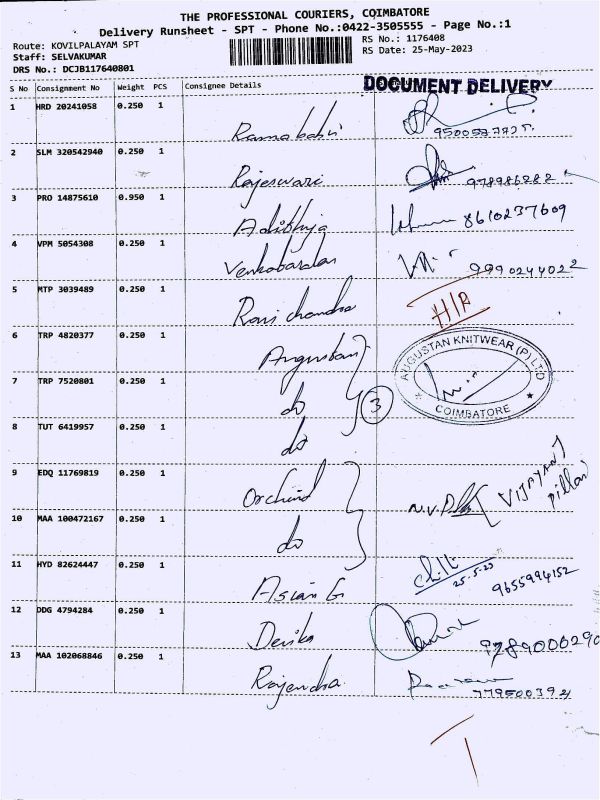 THE PROFESSIONAL COURIERS, COIMBATORE
Delivery Runsheet - SPT - Phone No.:0422-3505555 - Page No.:1
Route: KOVILPALAYAM SPT
RS No.: 1176408
Staff: SELVAKUMAR
RS Date: 25-May-2023
DRS No.: DCJB117640801
S No Consignment No Weight PCS Consignee Details
DOCUMENT DELIVERY
1 HRD 20241058 0.250 1
2 SLM 320542940 0.250 1 Rajeswari
3 PRO 14875610 0.950 1 8610237609
4 VPM 5054308 0.250 1 9990244022
5 MTP 3039489 0.250 1 Ravi chandra
6 TRP 4820377 0.250 1 Augustan
AUGUSTAN KNITWEAR (P) LTD
COIMBATORE
7 TRP 7520801 0.250 1 do 3
8 TUT 6419957 0.250 1 do
9 EDQ 11769819 0.250 1 Orchind VIJAYANT pillai
10 MAA 100472167 0.250 1 do
11 HYD 82624447 0.250 1 Asian G 25-5-23 9655994152
12 DDG 4794284 0.250 1 Devika 9789000290
13 MAA 102068846 0.250 1 Rajendra